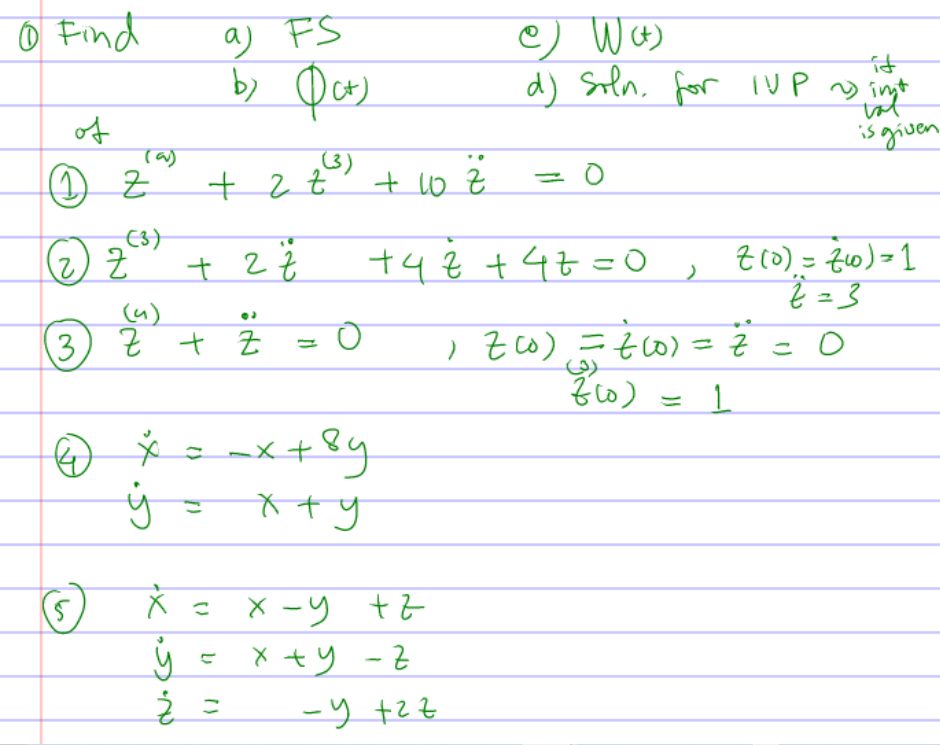 ① Find a) FS c) W(t)
b) Φ(t) d) Soln. for IVP ~> if init val is given
of
① z^(4) + 2 z^(3) + 10 z̈ = 0
② z^(3) + 2 z̈ + 4 ż + 4z = 0 , z(0) = ż(0) = 1
z̈ = 3
③ z^(4) + z̈ = 0 , z(0) = ż(0) = z̈ = 0
z^(3)(0) = 1
④ ẋ = -x + 8y
ẏ = x + y
⑤ ẋ = x - y + z
ẏ = x + y - z
ż = -y + 2z